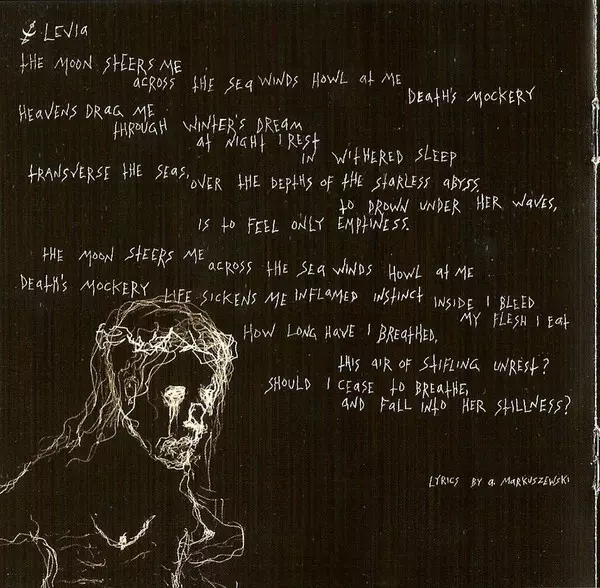 LEVIA
THE MOON STEERS ME
ACROSS THE SEA WINDS HOWL AT ME
DEATH'S MOCKERY
HEAVENS DRAG ME
THROUGH WINTER'S DREAM
AT NIGHT I REST
IN WITHERED SLEEP
TRANSVERSE THE SEAS,
OVER THE DEPTHS OF THE STARLESS ABYSS,
TO DROWN UNDER HER WAVES,
IS TO FEEL ONLY EMPTINESS.
THE MOON STEERS ME
ACROSS THE SEA WINDS HOWL AT ME
DEATH'S MOCKERY LIFE SICKENS ME INFLAMED INSTINCT INSIDE I BLEED
MY FLESH I EAT
HOW LONG HAVE I BREATHED,
THIS AIR OF STIFLING UNREST?
SHOULD I CEASE TO BREATHE,
AND FALL INTO HER STILLNESS?
LYRICS BY A. MARKUSZEWSKI